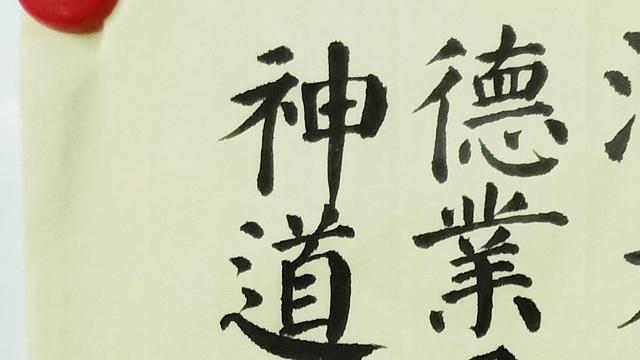 德業
神道